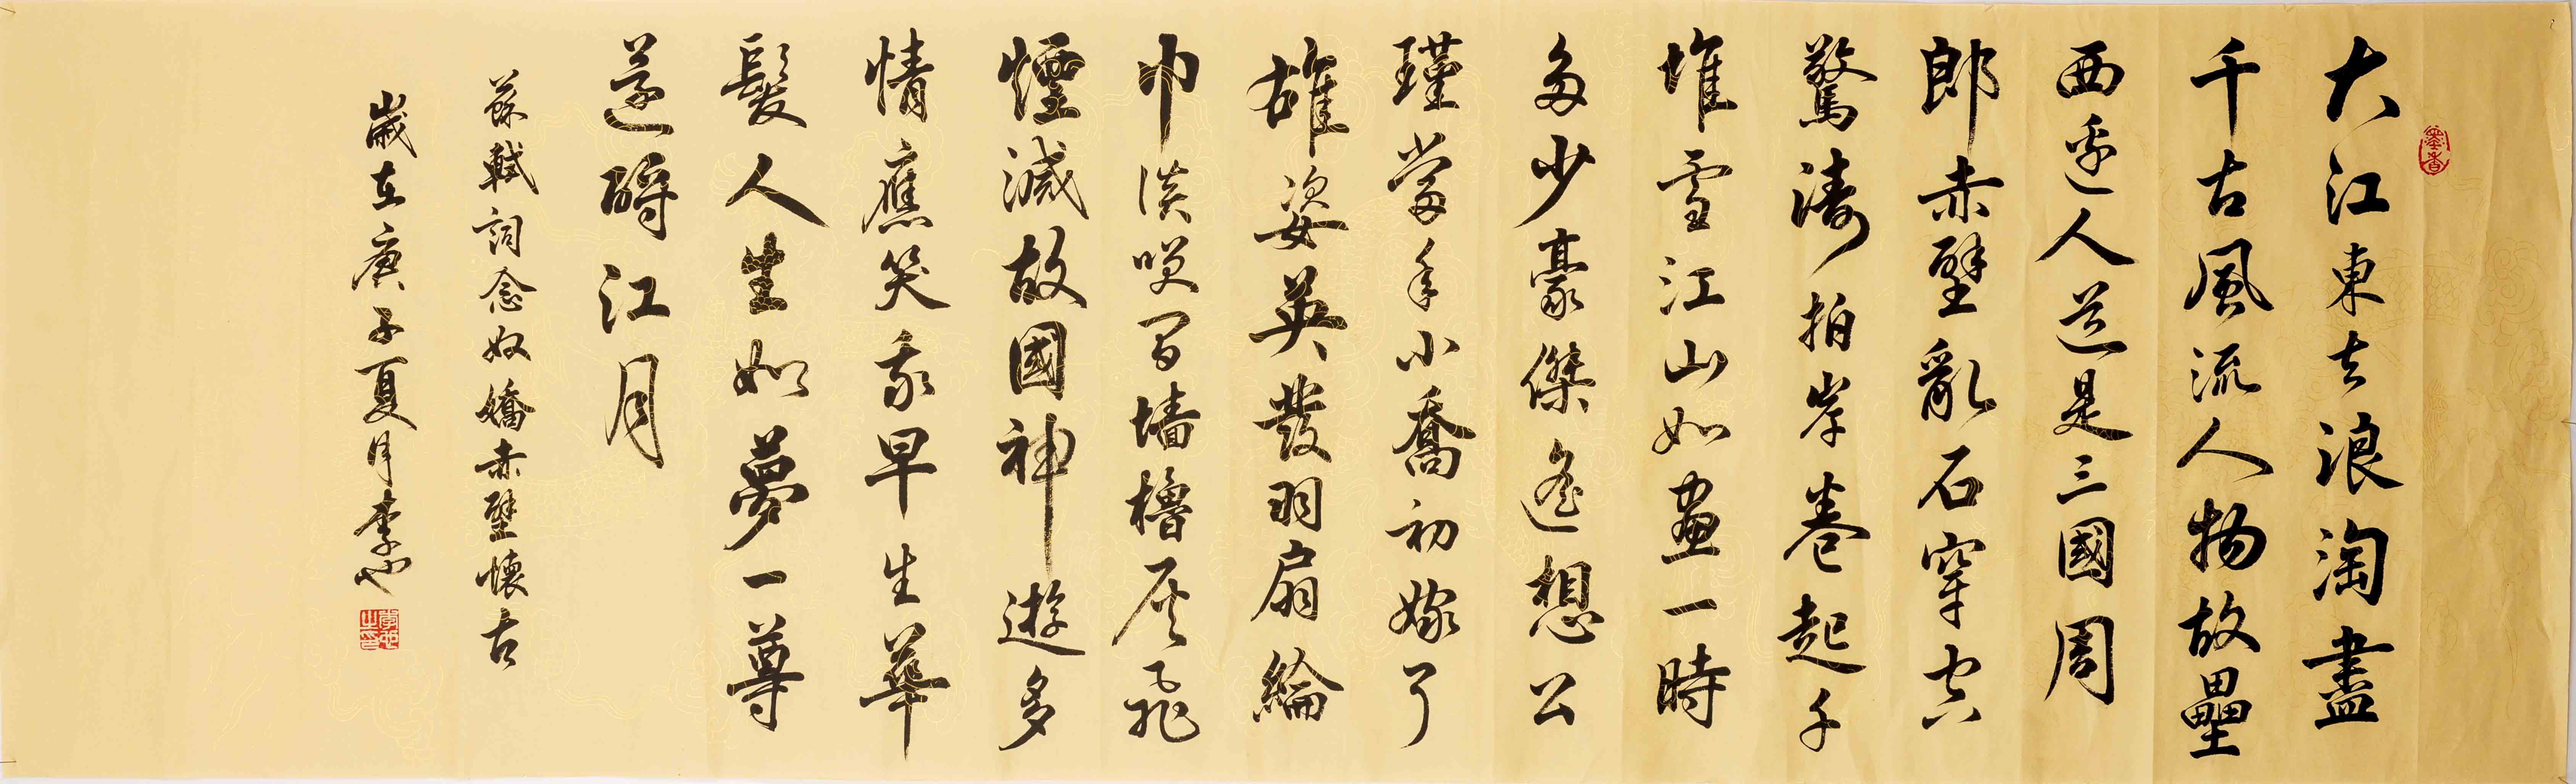 墨香
大江東去浪淘盡
千古風流人物故壘
西邊人道是三國周
郎赤壁亂石穿空
驚濤拍岸卷起千
堆雪江山如畫一時
多少豪傑遙想公
瑾當年小喬初嫁了
雄姿英發羽扇綸
巾談笑間墻櫓灰飛
煙滅故國神遊多
情應笑我早生華
髮人生如夢一尊
還酹江月
蘇軾詞念奴嬌赤壁懷古
歲在庚子夏月李